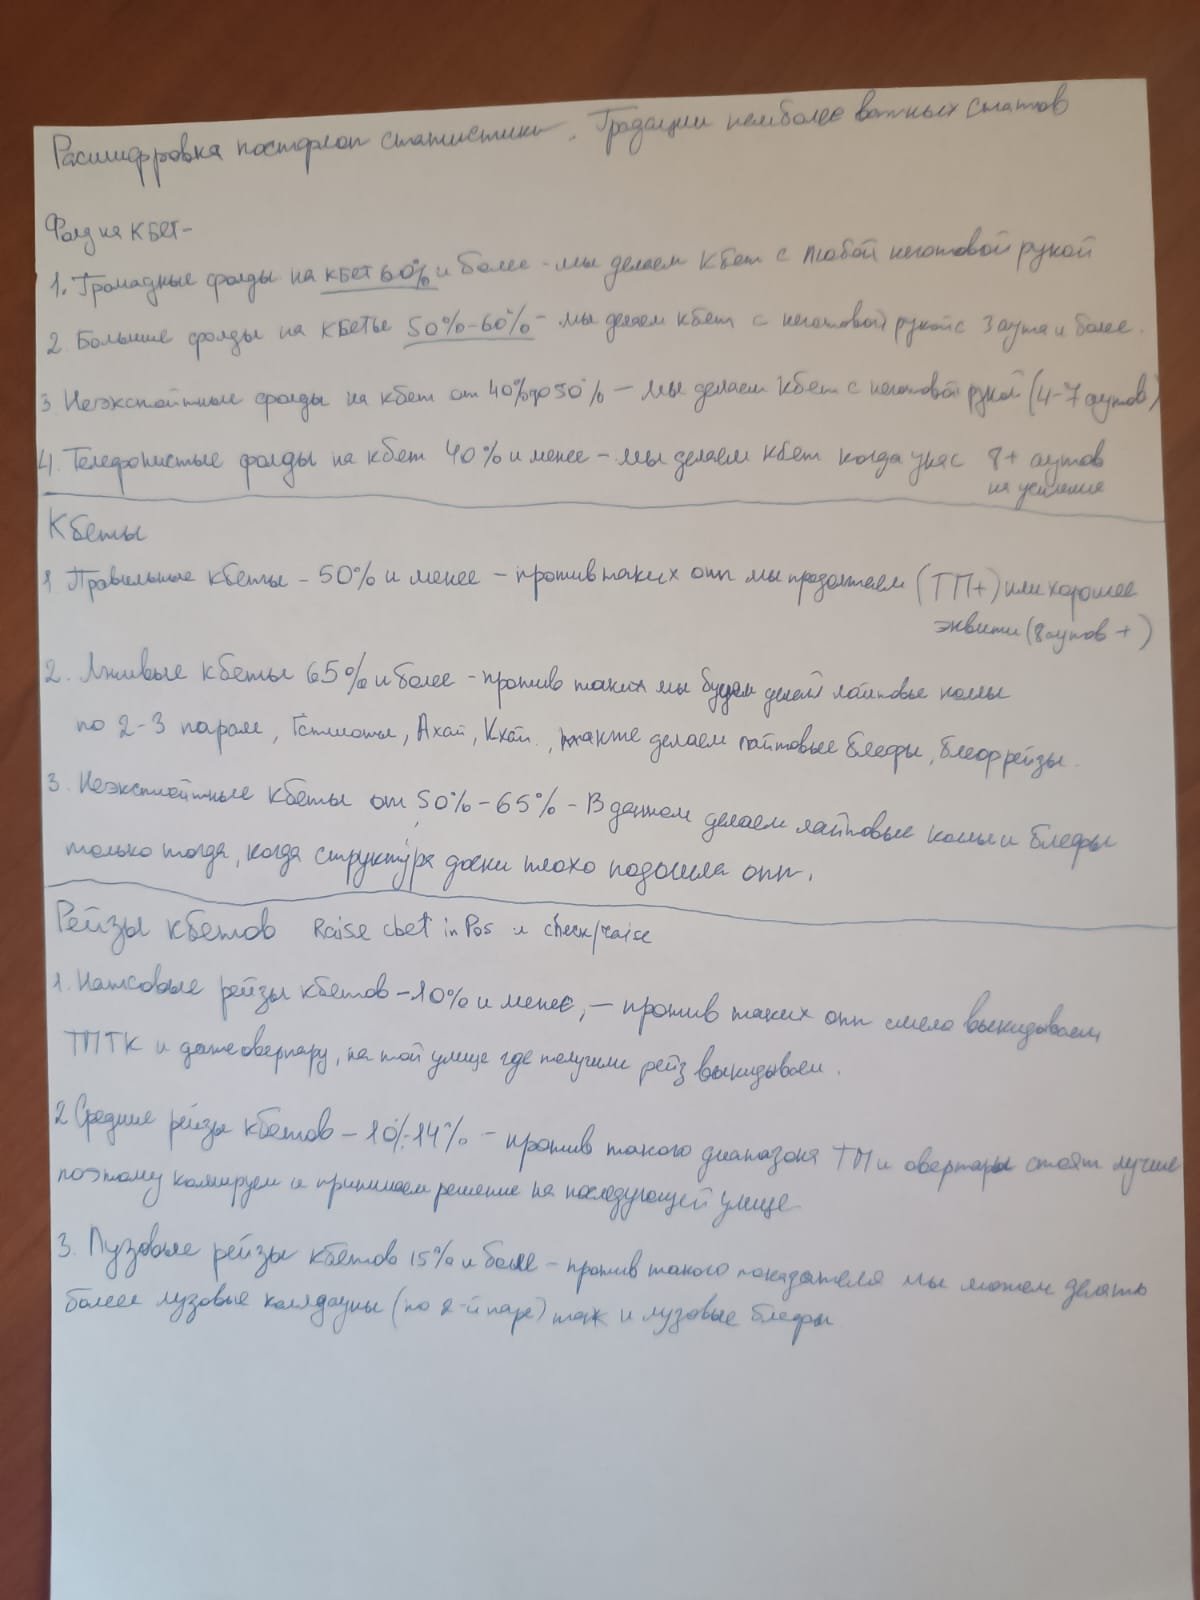 Расшифровка постфлоп статистики. Градации наиболее важных статов
Фолд на Кбет-
1. Громадные фолды на кбет 60% и более - мы делаем Кбет с любой неготовой рукой
2. Большие фолды на кбеты 50%-60% - мы делаем кбет с неготовой рукой с 3 аута и более.
3. Неэксплойтные фолды на кбет от 40% до 50% - мы делаем кбет с неготовой рукой (4-7 аутов)
4. Телефонистые фолды на кбет 40% и менее - мы делаем кбет когда у нас 8+ аутов
на усиление
Кбеты
1 Правильные кбеты - 50% и менее - против таких опп мы продолжаем (ТП+) или хорошее
эквити (8 аутов +)
2. Лживые кбеты 65% и более - против таких мы будем делать лайтовые коллы
по 2-3 парам, Гатшотам, Ахай, Кхай, также делаем лайтовые блефы, блефрейзы.
3. Неэксплойтные кбеты от 50%-65% - В данном делаем лайтовые коллы и блефы
только тогда, когда структура доски плохо подошла опп.
Рейзы кбетов Raise cbet in Pos и check/raise
1. Натсовые рейзы кбетов - 10% и менее, - против таких опп смело выкидываем
ТПТК и даже оверпару, на той улице где получили рейз выкидываем.
2 Средние рейзы кбетов - 10%-14% - против такого диапазона ТП и оверпары стоят лучше
поэтому коллируем и принимаем решение на последующей улице
3. Лузовые рейзы кбетов 15% и более - против такого показателя мы можем делать
более лузовые коллдауны (по 2-й паре) так и лузовые блефы